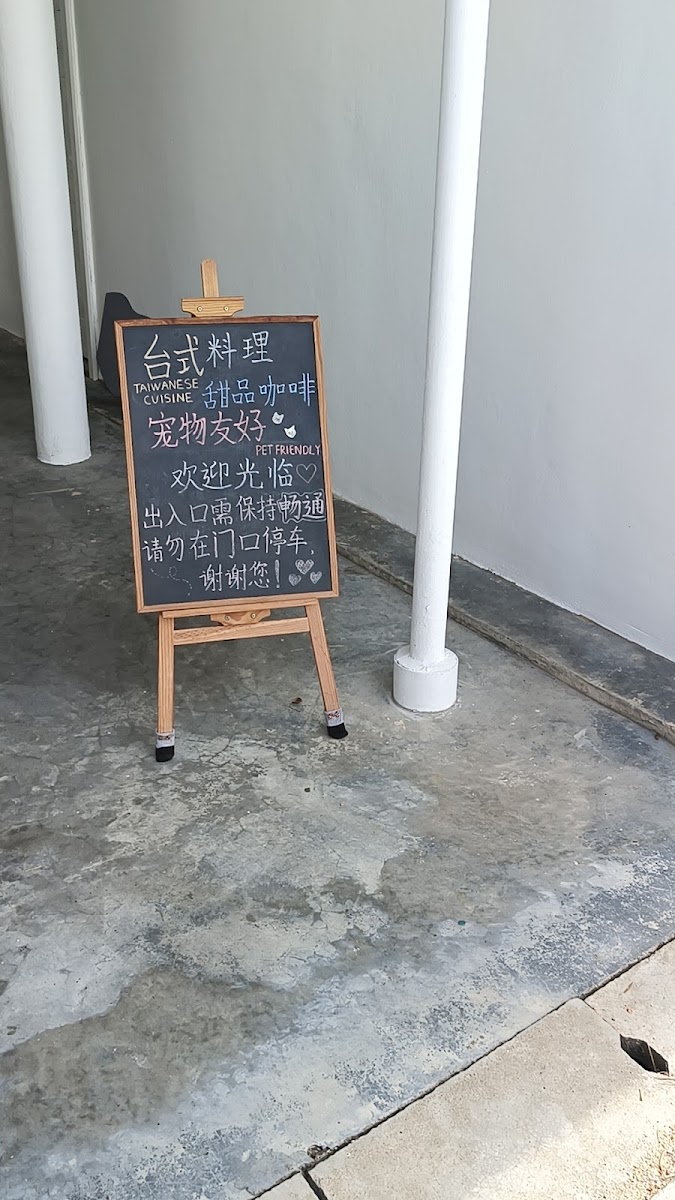 台式料理
TAIWANESE
CUISINE
甜品咖啡
宠物友好
PET FRIENDLY
欢迎光临♡
出入口需保持畅通
请勿在门口停车,
谢谢您!